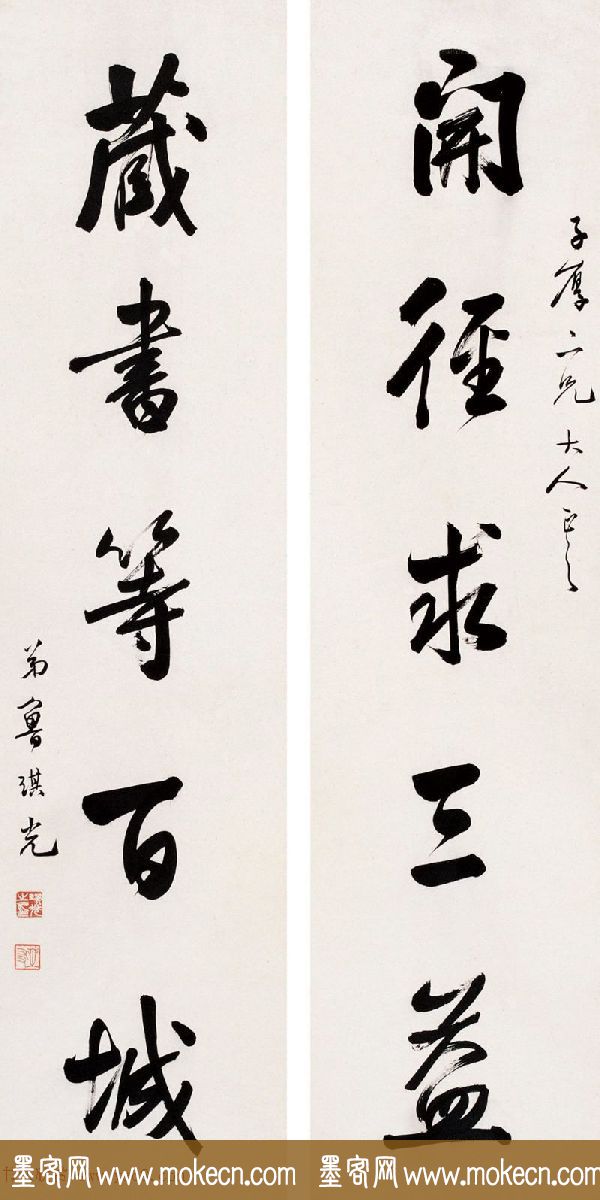 子厚二兄大人正之
開徑求三益
藏書等百城
弟魯琪光
墨客网 www.mokecn.com 墨客网 www.mokecn.com